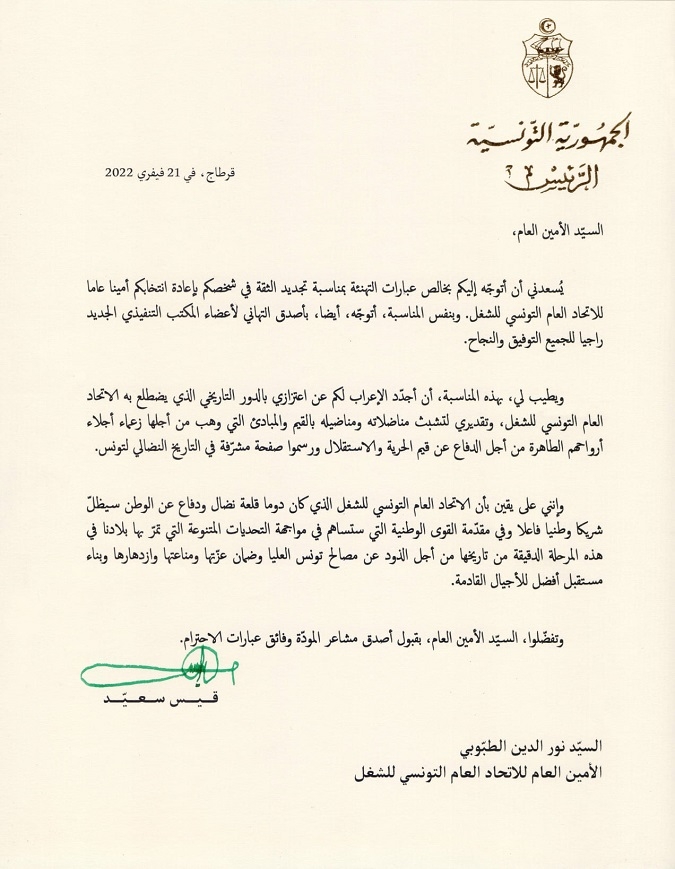 الجمهوريّة التّونسيّة
الرّئيس
قرطاج، في 21 فيفري 2022
السيّد الأمين العام،
يُسعدني أن أتوجّه إليكم بخالص عبارات التهنئة بمناسبة تجديد الثقة في شخصكم بإعادة انتخابكم أمينا عاما
للاتحاد العام التونسي للشغل. وبنفس المناسبة، أتوجّه، أيضا، بأصدق التهاني لأعضاء المكتب التنفيذي الجديد
راجيا للجميع التوفيق والنجاح.
ويطيب لي، بهذه المناسبة، أن أجدّد الإعراب لكم عن اعتزازي بالدور التاريخي الذي يضطلع به الاتحاد
العام التونسي للشغل، وتقديري لتشبث مناضلاته ومناضليه بالقيم والمبادئ التي وهب من أجلها زعماء أجلاء
أرواحهم الطاهرة من أجل الدفاع عن قيم الحرية والاستقلال ورسموا صفحة مشرّفة في التاريخ النضالي لتونس.
وإنني على يقين بأن الاتحاد العام التونسي للشغل الذي كان دوما قلعة نضال ودفاع عن الوطن سيظلّ
شريكا وطنيا فاعلا وفي مقدّمة القوى الوطنية التي ستساهم في مواجهة التحديات المتنوعة التي تمرّ بها بلادنا في
هذه المرحلة الدقيقة من تاريخها من أجل الذود عن مصالح تونس العليا وضمان عزّتها ومناعتها وازدهارها وبناء
مستقبل أفضل للأجيال القادمة.
وتفضّلوا، السيّد الأمين العام، بقبول أصدق مشاعر المودّة وفائق عبارات الاحترام.
قـيـس سـعـيّـد
السيّد نور الدين الطبّوبي
الأمين العام للاتحاد العام التونسي للشغل